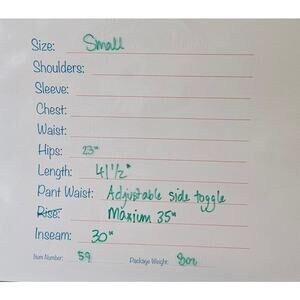 Size: Small
Shoulders:
Sleeve:
Chest:
Waist:
Hips: 23"
Length: 41½"
Pant Waist: Adjustable side toggle
Rise: Maxium 35"
Inseam: 30"
Item Number: 59 Package Weight: 8oz